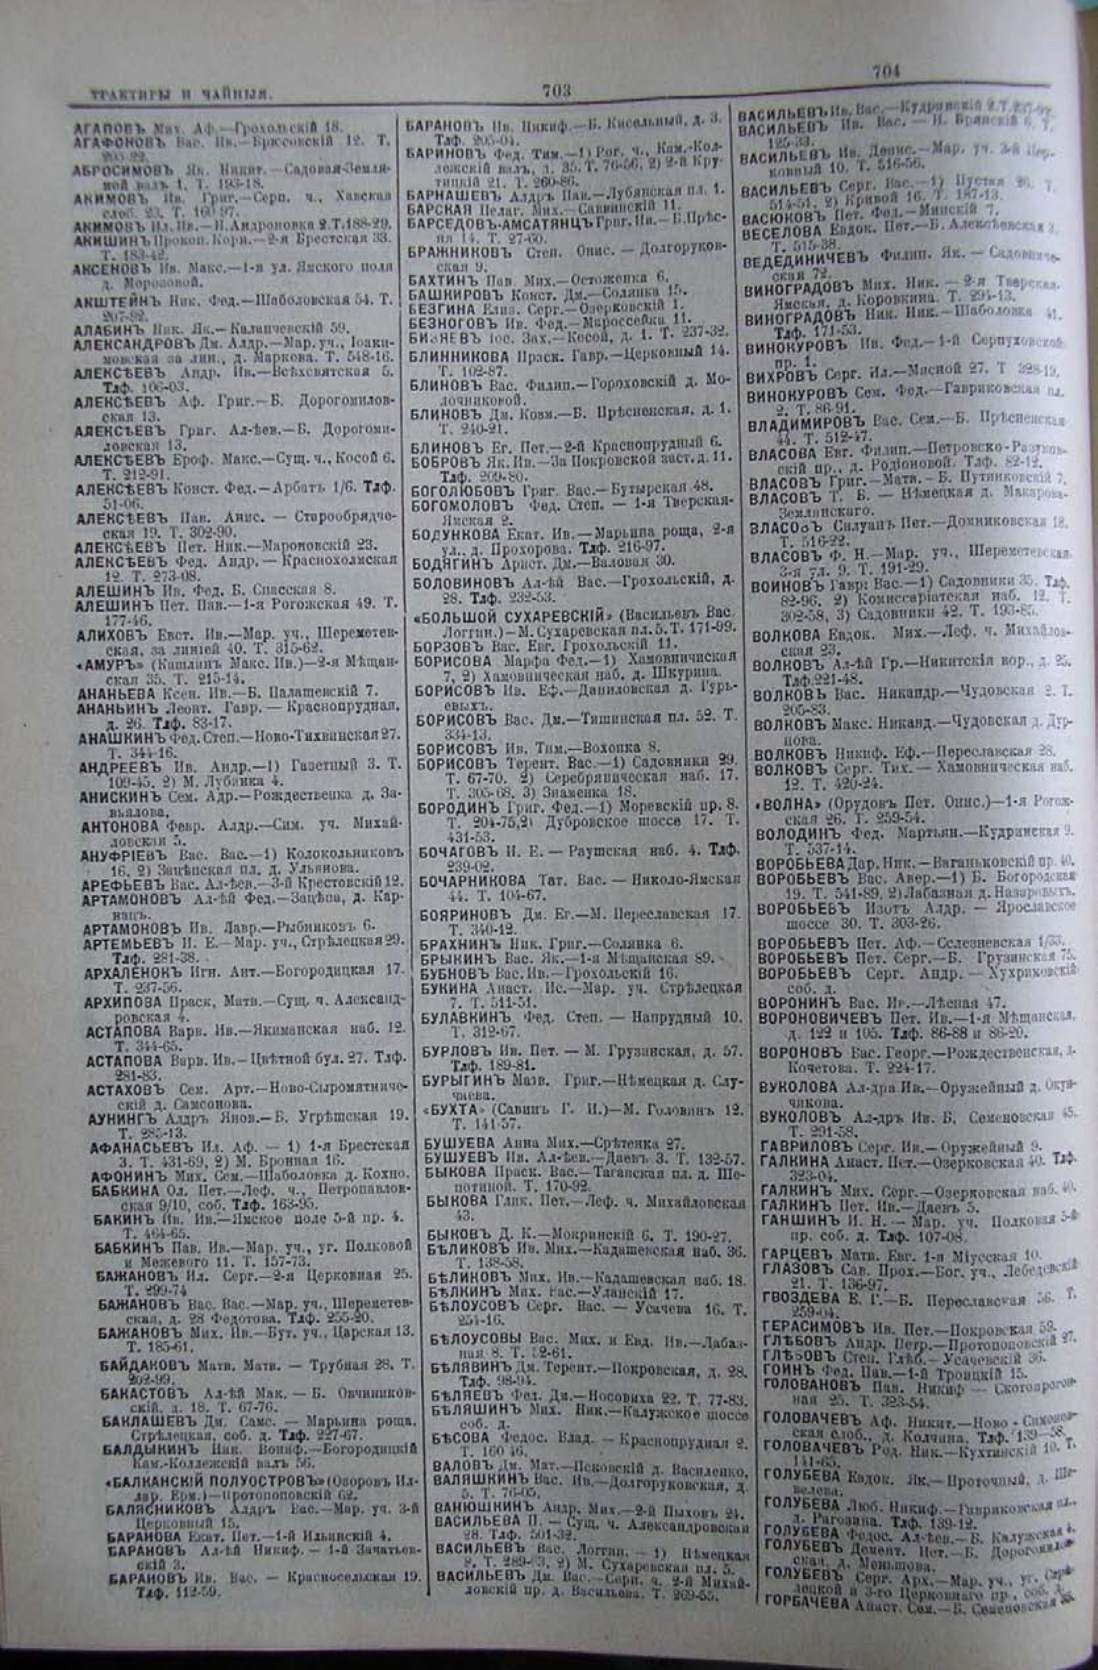 ТРАКТИРЫ И ЧАЙНЫЯ.
703
704
АГАПОВЪ Мих. Аф.—Грохольскій 18.
АГАФОНОВЪ Вас. Ив.—Брюсовскій 12. Т.
АБРОСИМОВЪ Як. Никит.—Садовая-Земля-
ной валъ 1. Т. 193-18.
АКИМОВЪ Ив. Григ.—Серп. ч., Хавская
слоб. 23. Т. 160-97.
АКИМОВЪ Ил. Ив.—Н. Андроновка 2. Т. 188-29.
АКИШИНЪ Прокоп. Корн.—2-я Брестская 33.
Т. 183-42.
АКСЕНОВЪ Ив. Макс.—1-я ул. Ямского поля
д. Морозовой.
АКШТЕЙНЪ Ник. Фед.—Шаболовская 54. Т.
207-92.
АЛАБИНЪ Ник. Як.—Каланчевскій 59.
АЛЕКСАНДРОВЪ Дм. Алдр.—Мар. уч., Іоаки-
мовская за лин., д. Маркова. Т. 548-16.
АЛЕКСѢЕВЪ Андр. Ив.—Всѣхсвятская 5.
Тлф. 106-03.
АЛЕКСѢЕВЪ Аф. Григ.—Б. Дорогомилов-
ская 13.
АЛЕКСѢЕВЪ Григ. Ал-ѣев.—Б. Дорогоми-
ловская 13.
АЛЕКСѢЕВЪ Ероф. Макс.—Сущ. ч., Косой 6.
Т. 212-91.
АЛЕКСѢЕВЪ Конст. Фед.—Арбатъ 1/6. Тлф.
51-06.
АЛЕКСѢЕВЪ Пав. Анис. — Старообрядче-
ская 19. Т. 302-90.
АЛЕКСѢЕВЪ Пет. Ник.—Мароновскій 23.
АЛЕКСѢЕВЪ Фед. Андр. — Краснохолмская
12. Т. 273-08.
АЛЕШИНЪ Ив. Фед. Б. Спасская 8.
АЛЕШИНЪ Пет. Пав.—1-я Рогожская 49. Т.
177-46.
АЛИХОВЪ Евст. Ив.—Мар. уч., Шереметев-
ская, за линіей 40. Т. 315-62.
«АМУРЪ» (Кашлинъ Макс. Ив.)—2-я Мѣщан-
ская 35. Т. 215-14.
АНАНЬЕВА Ксен. Ив.—Б. Палашевскій 7.
АНАНЬИНЪ Леонт. Гавр. — Краснопрудная,
д. 26. Тлф. 83-17.
АНАШКИНЪ Фед. Степ.—Ново-Тихвинская 27.
Т. 344-16.
АНДРЕЕВЪ Ив. Андр.—1) Газетный 3. Т.
109-45. 2) М. Лубянка 4.
АНИСКИНЪ Сем. Адр.—Рождественка д. За-
вьялова.
АНТОНОВА Февр. Алдр.—Сим. уч. Михай-
ловская 5.
АНУФРІЕВЪ Вас. Вас.—1) Колокольниковъ
16. 2) Зацѣпская пл. д. Ульянова.
АРЕФЬЕВЪ Вас. Ал-ѣев.—3-й Крестовскій 12.
АРТАМОНОВЪ Ал-ѣй Фед.—Зацѣпа, д. Кар-
нацъ.
АРТАМОНОВЪ Ив. Лавр.—Рыбниковъ 6.
АРТЕМЬЕВЪ И. Е.—Мар. уч., Стрѣлецкая 29.
Тлф. 281-38.
АРХАЛЕНОКЪ Игн. Ант.—Богородицкая 17.
Т. 237-56.
АРХИПОВА Праск. Матв.—Сущ. ч. Александ-
ровская 4.
АСТАПОВА Варв. Ив.—Якиманская наб. 12.
Т. 344-65.
АСТАПОВА Варв. Ив.—Цвѣтной бул. 27. Тлф.
281-83.
АСТАХОВЪ Сем. Арт.—Ново-Сыромятниче-
скій д. Самсонова.
АУНИНГЪ Алдръ Янов.—Б. Угрѣшская 19.
Т. 285-13.
АФАНАСЬЕВЪ Ил. Аф. — 1) 1-я Брестская
3. Т. 431-69, 2) М. Бронная 16.
АФОНИНЪ Мих. Сем.—Шаболовка д. Кохно.
БАБКИНА Ол. Пет.—Леф. ч., Петропавлов-
ская 9/10, соб. Тлф. 163-95.
БАКИНЪ Ив. Ив.—Ямское поле 5-й пр. 4.
Т. 464-65.
БАБКИНЪ Пав. Ив.—Мар. уч., уг. Полковой
и Межевого 11. Т. 157-73.
БАЖАНОВЪ Ил. Серг.—2-я Церковная 25.
Т. 299-74
БАЖАНОВЪ Вас. Вас.—Мар. уч., Шереметев-
ская, д. 28 Федотова. Тлф. 255-20.
БАЖАНОВЪ Мих. Ив.—Бут. уч., Царская 13.
Т. 185-61.
БАЙДАКОВЪ Матв. Матв. — Трубная 28. Т.
202-99.
БАКАСТОВЪ Ал-ѣй Мак. — Б. Овчиников-
скій, д. 18. Т. 67-76.
БАКЛАШЕВЪ Дм. Самс. — Марьина роща,
Стрѣлецкая, соб. д. Тлф. 227-67.
БАЛДЫКИНЪ Ник. Вониф.—Богородицкій
Кам.-Коллежскій валъ 56.
«БАЛКАНСКІЙ ПОЛУОСТРОВЪ» (Озоровъ Ил-
лар. Ерм.)—Протопоповскій 62.
БАЛЯСНИКОВЪ Алдръ Вас.—Мар. уч. 3-й
Церковный 15.
БАРАНОВА Екат. Пет.—1-й Ильинскій 4.
БАРАНОВЪ Ал-ѣй Никиф. — 1-й Зачатьев-
скій 3.
БАРАНОВЪ Ив. Вас. — Красносельская 19.
Тлф. 112-59.
БАРАНОВЪ Ив. Никиф.—Б. Кисельный, д. 3.
Тлф. 205-04.
БАРИНОВЪ Фед. Тим.—1) Рог. ч., Кам.-Кол-
лежскій валъ, д. 35. Т. 76-56, 2) 2-й Кру-
тицкій 21. Т. 260-86.
БАРНАШЕВЪ Алдръ Пав.—Лубянская пл. 1.
БАРСКАЯ Пелаг. Мих.—Саввинскій 11.
БАРСЕДОВЪ-АМСАТЯНЦЪ Григ. Ив.—Б. Прѣс-
ня 14. Т. 27-60.
БРАЖНИКОВЪ Степ. Опис. — Долгоруков-
ская 9.
БАХТИНЪ Пав. Мих.—Остоженка 6.
БАШКИРОВЪ Конст. Дм.—Солянка 15.
БЕЗГИНА Елиз. Серг.—Озерковскій 1.
БЕЗНОГОВЪ Ив. Фед.—Маросейка 11.
БИЗЯЕВЪ Іос. Зах.—Косой, д. 1. Т. 237-32.
БЛИННИКОВА Праск. Гавр.—Церковный 14.
Т. 102-87.
БЛИНОВЪ Вас. Филип.—Гороховскій д. Мо-
лочниковой.
БЛИНОВЪ Дм. Козм.—Б. Прѣсненская, д. 1.
Т. 240-21.
БЛИНОВЪ Ег. Пет.—2-й Краснопрудный 6.
БОБРОВЪ Як. Ив.—За Покровской заст. д. 11.
Тлф. 209-80.
БОГОЛЮБОВЪ Григ. Вас.—Бутырская 48.
БОГОМОЛОВЪ Фед. Степ. — 1-я Тверская-
Ямская 2.
БОДУНКОВА Екат. Ив.—Марьина роща, 2-я
ул., д. Прохорова. Тлф. 216-97.
БОДЯГИНЪ Арист. Дм.—Валовая 30.
БОЛОВИНОВЪ Ал-ѣй Вас.—Грохольскій, д.
28. Тлф. 232-53.
«БОЛЬШОЙ СУХАРЕВСКІЙ» (Васильевъ Вас.
Логгин.)—М. Сухаревская пл. 5. Т. 171-99.
БОРЗОВЪ Вас. Евг. Грохольскій 11.
БОРИСОВА Марфа Фед.—1) Хамовническая
7, 2) Хамовническая наб. д. Шкурина.
БОРИСОВЪ Ив. Еф.—Даниловская д. Гурь-
евыхъ.
БОРИСОВЪ Вас. Дм.—Тишинская пл. 52. Т.
334-13.
БОРИСОВЪ Ив. Тим.—Вохонка 8.
БОРИСОВЪ Терент. Вас.—1) Садовники 29.
Т. 67-70. 2) Серебряническая наб. 17.
Т. 305-68, 3) Знаменка 18.
БОРОДИНЪ Григ. Фед.—1) Моревскій пр. 8.
Т. 204-75, 2) Дубровское шоссе 17. Т.
431-53.
БОЧАГОВЪ И. Е. — Раушская наб. 4. Тлф.
239-02.
БОЧАРНИКОВА Тат. Вас. — Николо-Ямская
44. Т. 104-67.
БОЯРИНОВЪ Дм. Ег.—М. Переславская 17.
Т. 340-12.
БРАХНИНЪ Ник. Григ.—Солянка 6.
БРЫКИНЪ Вас. Як.—1-я Мѣщанская 89.
БУБНОВЪ Вас. Ив.—Грохольскій 16.
БУКИНА Анаст. Ис.—Мар. уч. Стрѣлецкая
7. Т. 511-51.
БУЛАВКИНЪ Фед. Степ. — Напрудный 10.
Т. 312-67.
БУРЛОВЪ Ив. Пет. — М. Грузинская, д. 57.
Тлф. 189-81.
БУРЫГИНЪ Мазв. Григ.—Нѣмецкая д. Слу-
чаева.
«БУХТА» (Савинъ Г. И.)—М. Головинъ 12.
Т. 141-57.
БУШУЕВА Анна Мих.—Срѣтенка 27.
БУШУЕВЪ Ив. Ал-ѣев.—Даевъ 3. Т. 132-57.
БЫКОВА Праск. Вас.—Таганская пл. д. Ше-
потиной. Т. 170-92.
БЫКОВА Глик. Пет.—Леф. ч. Михайловская
43.
БЫКОВЪ Д. К.—Мокринскій 6. Т. 190-27.
БѢЛИКОВЪ Ив. Мих.—Кадашевская наб. 36.
Т. 138-58.
БѢЛИКОВЪ Мих. Ив.—Кадашевская наб. 18.
БѢЛКИНЪ Мих. Вас.—Уланскій 17.
БѢЛОУСОВЪ Серг. Вас. — Усачева 16. Т.
254-16.
БѢЛОУСОВЫ Вас. Мих. и Евд. Ив.—Лабаз-
ная 8. Т. 52-61.
БѢЛЯВИНЪ Дм. Терент.—Покровская, д. 28.
Тлф. 98-94.
БѢЛЯЕВЪ Фед. Дм.—Носовиха 22. Т. 77-83.
БѢЛЯШИНЪ Мих. Ник.—Калужское шоссе
соб. д.
БѢСОВА Федос. Влад. — Краснопрудная 2.
Т. 160-46.
ВАЛОВЪ Дм. Мат.—Псковскій д. Василенко.
ВАЛЯШКИНЪ Вас. Ив.—Долгоруковская, д.
5. Т. 76-05.
ВАНЮШКИНЪ Андр. Мих.—2-й Пыховъ 24.
ВАСИЛЬЕВА П. — Сущ. ч. Александровская
28. Тлф. 501-32.
ВАСИЛЬЕВЪ Вас. Логгин. — 1) Нѣмецкая
2) М. Сухаревская пл. 5.
ВАСИЛЬЕВЪ Дм. Вас.—Серп. ч. 2-й Михай-
ловскій пр. д. Васильева. Т. 269-55.
ВАСИЛЬЕВЪ Ив. Вас.—Кудринскій 2. Т.
ВАСИЛЬЕВЪ Ив. Вас. — Н. Брянскій 6. Т.
125-33.
ВАСИЛЬЕВЪ Ив. Денис.—Мар. уч. 3-й Цер-
ковный 10. Т. 516-56.
ВАСИЛЬЕВЪ Серг. Вас.—1) Пустая 26. Т.
514-51, 2) Кривой 16. Т. 187-13.
ВАСЮКОВЪ Пет. Фед.—Минскій 7.
ВЕСЕЛОВА Евдок. Пет.—Б. Алексѣевская 3.
Т. 515-38.
ВЕДЕДИНИЧЕВЪ Филип. Як. — Садовниче-
ская 72.
ВИНОГРАДОВЪ Мих. Ник. — 2-я Тверская-
Ямская, д. Коровкина. Т. 294-13.
ВИНОГРАДОВЪ Ник. Ник.—Шаболовка 41.
Тлф. 171-53.
ВИНОКУРОВЪ Ив. Фед.—1-й Серпуховской
пр. 1.
ВИХРОВЪ Серг. Ил.—Мясной 27. Т. 328-19.
ВИНОКУРОВЪ Сем. Фед.—Гавриковская пл.
2. Т. 86-91.
ВЛАДИМИРОВЪ Вас. Сем.—Б. Прѣсненская
44. Т. 512-47.
ВЛАСОВА Евг. Филип.—Петровско-Разумов-
скій пр., д. Родіоновой. Тлф. 82-12.
ВЛАСОВЪ Григ.—Матв.—Б. Путинковскій 7.
ВЛАСОВЪ Т. Б. — Нѣмецкая д. Макарова-
Землянскаго.
ВЛАСОВЪ Силуанъ Пет.—Домниковская 18.
Т. 516-22.
ВЛАСОВЪ Ф. Н.—Мар. уч., Шереметевская
3-я ул. 9. Т. 191-29.
ВОИНОВЪ Гавр. Вас.—1) Садовники 35. Тлф.
82-96, 2) Комиссаріатская наб. 12. Т.
302-58, 3) Садовники 42. Т. 193-85.
ВОЛКОВА Евдок. Мих.—Леф. ч. Михайлов-
ская 23.
ВОЛКОВЪ Ал-ѣй Гр.—Никитскія вор., д. 25.
Тлф. 221-48.
ВОЛКОВЪ Вас. Никандр.—Чудовская 2. Т.
205-83.
ВОЛКОВЪ Макс. Никанд.—Чудовская д. Дур-
нова.
ВОЛКОВЪ Никиф. Еф.—Переславская 28.
ВОЛКОВЪ Серг. Тих. — Хамовническая наб.
12. Т. 420-24.
«ВОЛНА» (Орудовъ Пет. Опис.)—1-я Рогож-
ская 26. Т. 259-54.
ВОЛОДИНЪ Фед. Мартьян.—Кудринская 9.
Т. 537-14.
ВОРОБЬЕВА Дар. Ник.—Ваганьковскій пр. 40.
ВОРОБЬЕВЪ Вас. Авер.—1) Б. Богородская
19. Т. 541-89, 2) Лабазная д. Назаровыхъ.
ВОРОБЬЕВЪ Изотъ Алдр. — Ярославское
шоссе 30. Т. 303-26.
ВОРОБЬЕВЪ Пет. Аф.—Селезневская 1/33.
ВОРОБЬЕВЪ Пет. Серг.—Б. Грузинская 75.
ВОРОБЬЕВЪ Серг. Андр. — Кухриковскій
соб. д.
ВОРОНИНЪ Вас. Ив.—Лѣсная 47.
ВОРОНОВИЧЕВЪ Пет. Ив.—1-я Мѣщанская,
д. 122 и 105. Тлф. 86-88 и 86-20.
ВОРОНОВЪ Вас. Георг.—Рождественская, д.
Кочетова. Т. 224-17.
ВУКОЛОВА Ал-дра Ив.—Оружейный д. Окун-
чикова.
ВУКОЛОВЪ Ал-дръ Ив. Б. Семеновская 45.
Т. 291-58.
ГАВРИЛОВЪ Серг. Ив.—Оружейный 9.
ГАЛКИНА Анаст. Пет.—Озерковская 40. Тлф.
323-04.
ГАЛКИНЪ Мих. Серг.—Озерковская наб. 40.
ГАЛКИНЪ Пет. Ив.—Даевъ 5.
ГАНШИНЪ И. Н. — Мар. уч. Полковая 5-й
пр. соб. д. Тлф. 107-08.
ГАРЦЕВЪ Матв. Евг. 1-я Міусская 10.
ГЛАЗОВЪ Сав. Прох.—Бог. уч., Лебедевскій
21. Т. 136-97.
ГВОЗДЕВА Е. Г.—Б. Переславская 56. Т.
259-04.
ГЕРАСИМОВЪ Ив. Пет.—Покровская 59.
ГЛѢБОВЪ Андр. Петр.—Протопоповскій 27.
ГЛѢБОВЪ Степ. Глѣб.—Усачевскій 36.
ГОИНЪ Фед. Пав.—1-й Троицкій 15.
ГОЛОВАНОВЪ Пав. Никиф.—Скотопрогон-
ная 25. Т. 323-54.
ГОЛОВАЧЕВЪ Аф. Никит.—Ново-Симонов-
ская слоб., д. Колчина. Тлф. 139-58.
ГОЛОВАЧЕВЪ Род. Ник.—Кухтинскій 10. Т.
141-65.
ГОЛУБЕВА Евдок. Як.—Проточный, д. Ше-
велева.
ГОЛУБЕВА Люб. Никиф.—Гавриковская пл.,
д. Рагозина. Тлф. 139-12.
ГОЛУБЕВА Федос. Ал-ѣев.—Б. Калужская 4.
ГОЛУБЕВЪ Демент. Пет.—Б. Дорогомилов-
ская, д. Меньшова.
ГОЛУБЕВЪ Серг. Арх.—Мар. уч., уг. Стрѣ-
лецкой и 3-го Церковнаго пр., соб. д.
ГОРБАЧЕВА Анаст. Сем.—Б. Семеновская